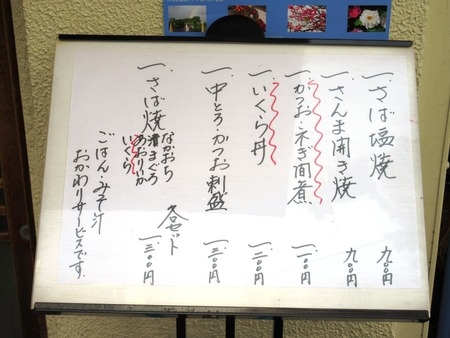 一.さば塩焼 九〇〇円
一.さんま開き焼 九〇〇円
一.かつお・ネギ面煮 一、一〇〇円
一.いくら丼 一、二〇〇円
一.中とろ・かつお刺盛 一、三〇〇円
一.さば焼 なかおち 漬まぐろ あおりいか いくら 各セット 一、三〇〇円
ごはん・みそ汁
おかわりサービスです.